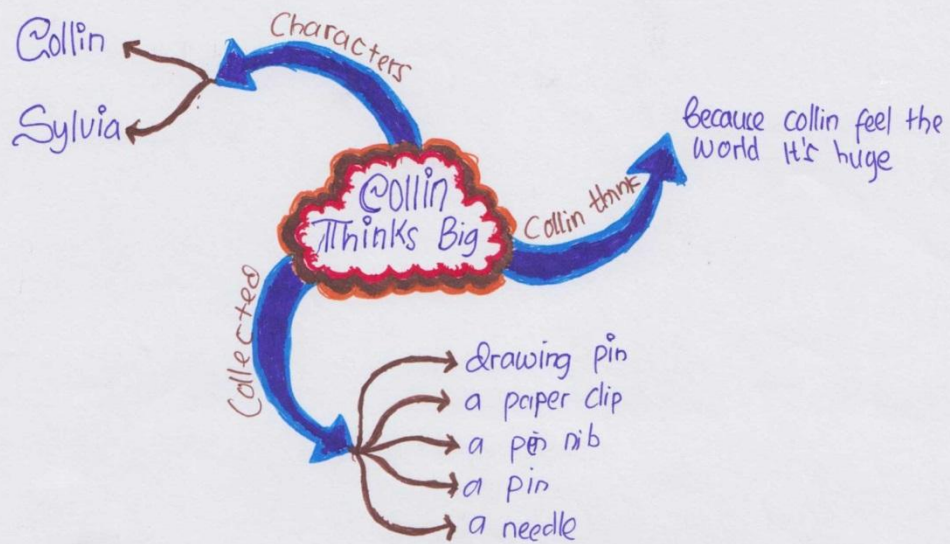 Collin
Sylvia
Characters
Collin
Thinks Big
Collin think
Because collin feel the
world It's huge
Collected
drawing pin
a paper clip
a pen nib
a pin
a needle